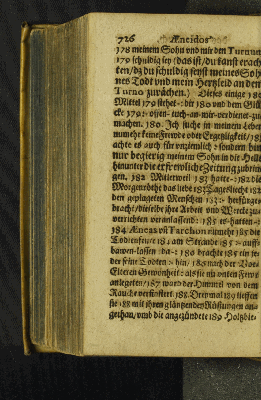 726 Æneidos
178 meinem Sohn und mir den Turnum
179 schuldig sey (das ist / du kanst
ten / dz du schuldig seyst meines Soh
nes Todt und mein Hertzleid an dem
Turno zurächen.) Dieses einige 180
Mittel 179 stehet : dir 180 und dem Glü
cke 179 : offen
machen. 180. Ich suche in meinem Leben
nunmehr keine Freude oder Ergetzligkeit /
achte es auch für unziemlich : sondern bin
nur begierig meinem Sohn in die Helle
hinunter die erfrewliche Zeitung zubrin
gen. 182 Mitlerweil 183 hatte : 182 die
Morgenröthe das liebe 183 Tageslicht 182
den geplageten Menschen 183 : herfürge
bracht / die ihre Arbeit und Wercke zu
verrichten veranlassend : 185 er hatten
184 Æneas vñ Tarchon nunmehr 185 die
Todtenfeuer 184 am Strande 185 : auff
bawen lassen da : 180 brachte 185 ein ie
der seine Todten : hin / 185 nach der Vor
Eltern Gewonheit : als sie nu unten Fewr
anlegeten / 187 ward der Himmel von dem
Rauche verfinstert. 188. Dreymal 189 lieffen
sie 188 mit ihren gläntzenden Rüstungen an
gethan / umb die angezündete 189 Holtzhe